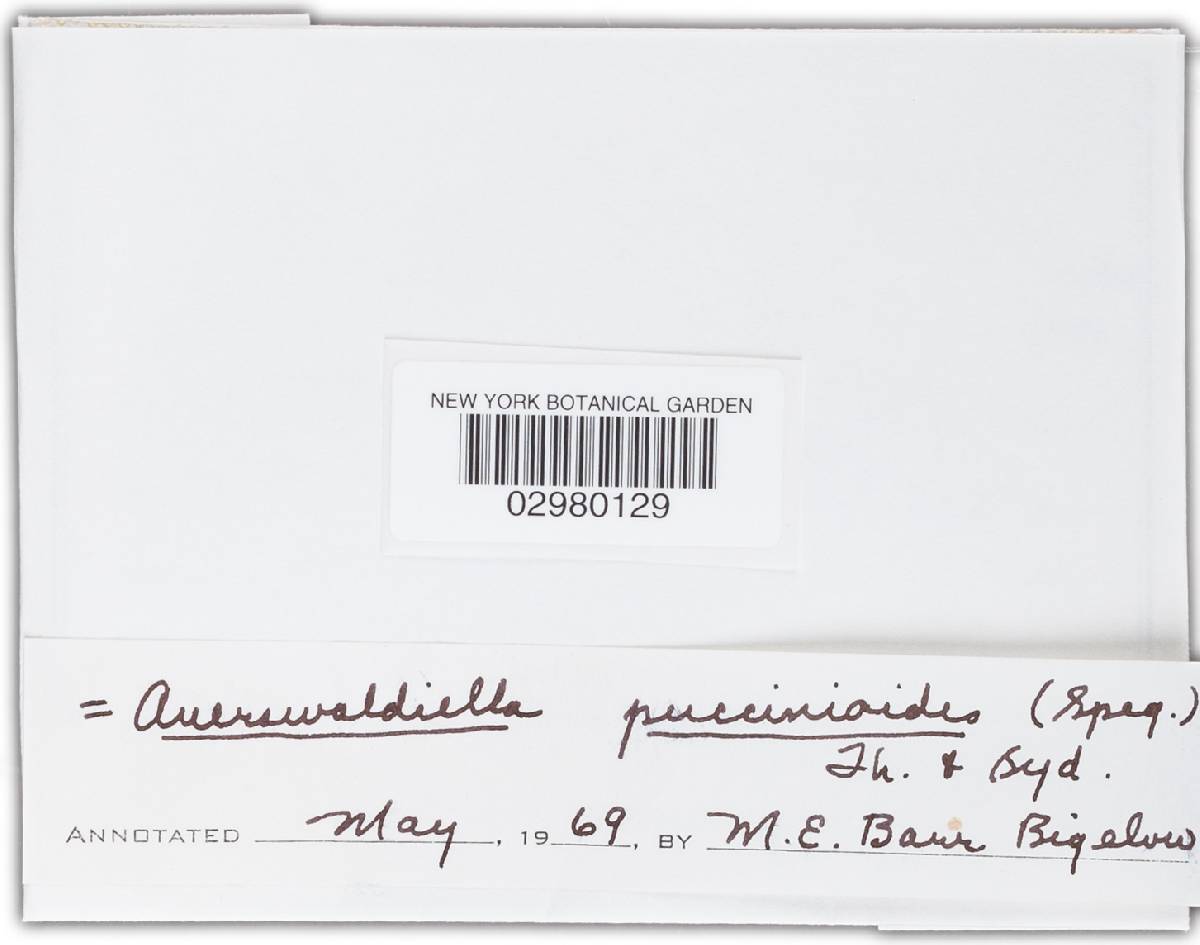 NEW YORK BOTANICAL GARDEN
02980129
= Auerswaldiella puccinioides (Speg.)
Th. & Syd.
ANNOTATED May, 1969, BY M.E. Barr Bigelow